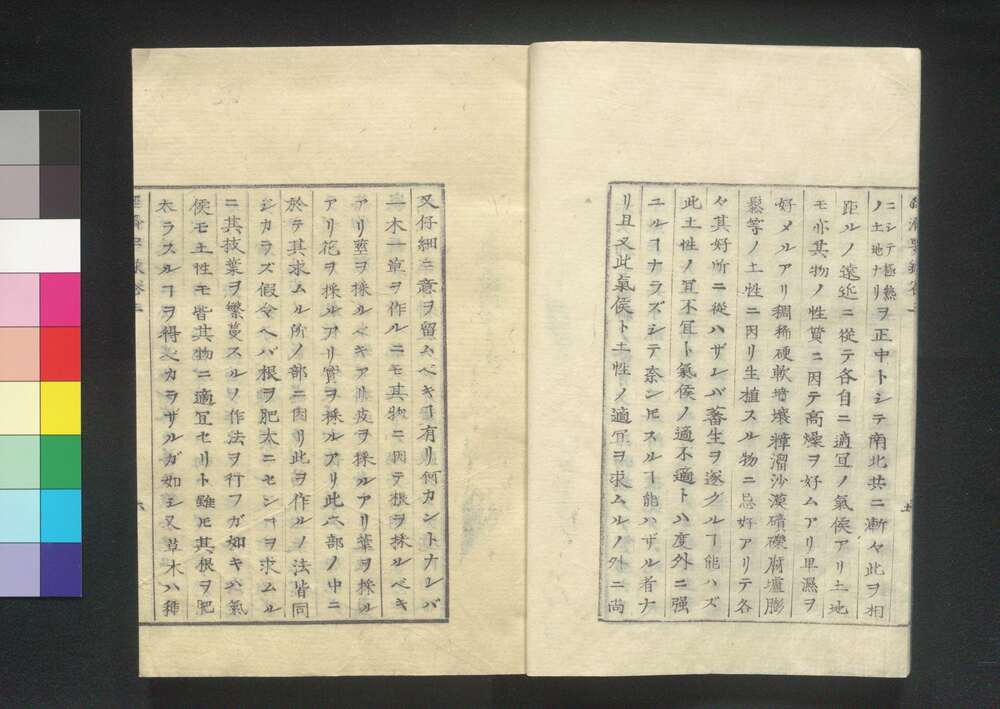 ニシテ極熱
ノ土地ナリヲ正中トシテ南北共ニ漸々此ヲ相
距ルノ遠近ニ從テ各自ニ適冝ノ氣侯アリ土地
モ亦其物ノ性質ニ因テ高燥ヲ好ムアリ卑濕ヲ
好メルアリ稠稀硬軟墳壤粹溜沙漠磧礫腐壚膨
鬆等ノ土性ニ因リ生植スル物ニ忌好アリテ各
々其好所ニ從ハザレバ蕃生ヲ遂グルヿ能ハズ
此土性ノ冝不冝ト氣侯ノ適不適トハ度外ニ强
ニルヿナラズシテ奈ンㇳモスルヿ能ハザル者ナ
リ且又此氣侯ト土性ノ適冝ヲ求ムルノ外ニ尚
又仔細ニ意ヲ留ムベキヿ有リ何カントナレバ
一木一草ヲ作ルニモ其物ニ因テ根ヲ採ルベキ
アリ莖ヲ採ルベキアリ皮ヲ採ルアリ葉ヲ採ル
アリ花ヲ採ルアリ實ヲ採ルアリ此六部ノ中ニ
於テ其求ムル所ノ部ニ因リ此ヲ作ルノ法皆同
シカラズ假令ヘバ根ヲ肥太ニセンヿヲ求ムル
ニ其技葉ヲ繁蔓スルノ作法ヲ行フガ如キハ氣
侯モ土性モ皆其物ニ適冝セリト雖モ其根ヲ肥
太ラスルヿヲ得ベカラザルガ如シ又草木ハ種